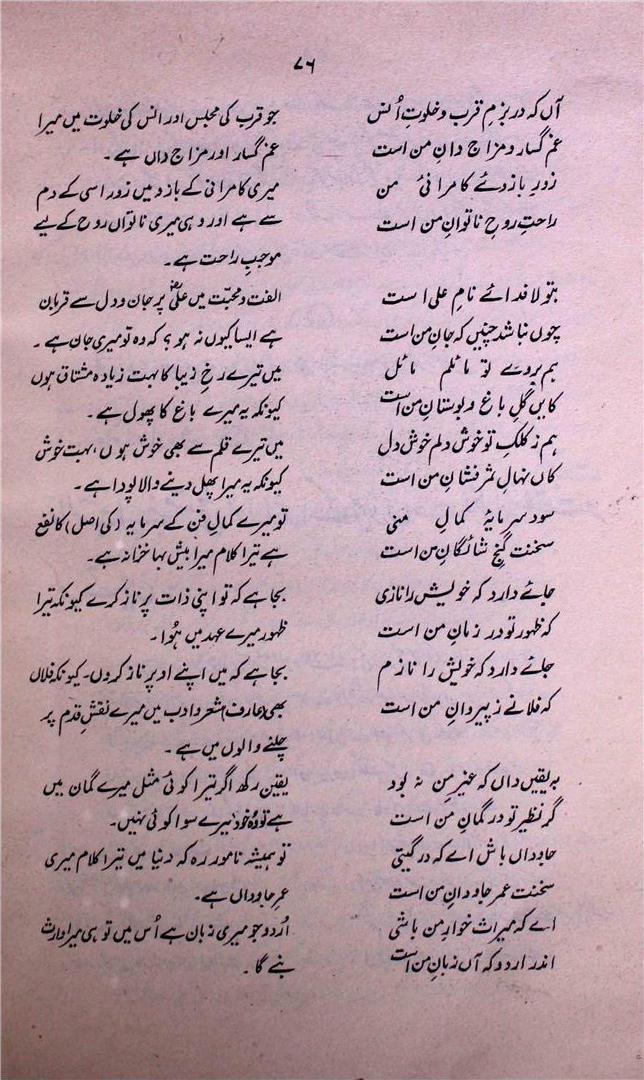 ۷۶
آں کہ در بزمِ قرب و خلوتِ اُنس
غم گسار و مزاج دانِ من است
زورِ بازوئے کامرانیٔ من
راحتِ روحِ ناتوانِ من است
بتولا فدائے نامِ علی است
چوں نباشد چنیں کہ جانِ من است
ہم بروئے تو مائلم مائل
کایں گلِ باغ و بوستانِ من است
ہم ز کلکِ تو خوش دلم خوش دل
کاں نہالِ ثمر فشانِ من است
سود سرمایۂ کمالِ منی
سخنت گنجِ شائگانِ من است
جائے دارد کہ خویش را نازی
کہ ظہورِ تو در زمانِ من است
جائے دارد کہ خویش را نازم
کہ فلانے ز پیروانِ من است
بہ یقیں داں کہ غیرِ من نہ بود
گر نظیرِ تو در گمانِ من است
جاوداں باش اے کہ در گیتی
سخنت عمرِ جاودانِ من است
اے کہ میراث خوارِ من باشی
اندر اردو کہ آں زبانِ من است
جو قرب کی مجلس اور انس کی خلوت میں میرا
غم گسار اور مزاج داں ہے۔
میری کامرانی کے بازو میں زور اسی کے دم
سے ہے اور وہی میری ناتواں روح کے لیے
موجبِ راحت ہے۔
الفت و محبّت میں علیؓ پر جان و دل سے قربان
ہے ایسا کیوں نہ ہو؟ کہ وہ تو میری جان ہے۔
میں تیرے رخِ زیبا کا بہت زیادہ مشتاق ہوں
کیونکہ یہ میرے باغ کا پھول ہے۔
میں تیرے قلم سے بھی خوش ہوں، بہت خوش
کیونکہ یہ میرا پھل دینے والا پودا ہے۔
تو میرے کمالِ فن کے سرمایہ (کی اصل) کا نفع
ہے تیرا کلام میرا بیش بہا خزانہ ہے۔
بجا ہے کہ تو اپنی ذات پر ناز کرے کیونکہ تیرا
ظہور میرے عہد میں ہُوا۔
بجا ہے کہ میں اپنے اوپر ناز کروں۔ کیونکہ فلاں
بھی (عارف) شعر و ادب میں میرے نقشِ قدم پر
چلنے والوں میں ہے۔
یقین رکھ اگر تیرا کوئی مثل میرے گمان میں
ہے تو وہ خود میرے سوا کوئی نہیں۔
تو ہمیشہ نامور رہ کہ دنیا میں تیرا کلام میری
عمرِ جاوداں ہے۔
اُردو جو میری زبان ہے اُس میں تو ہی میرا وارث
بنے گا۔